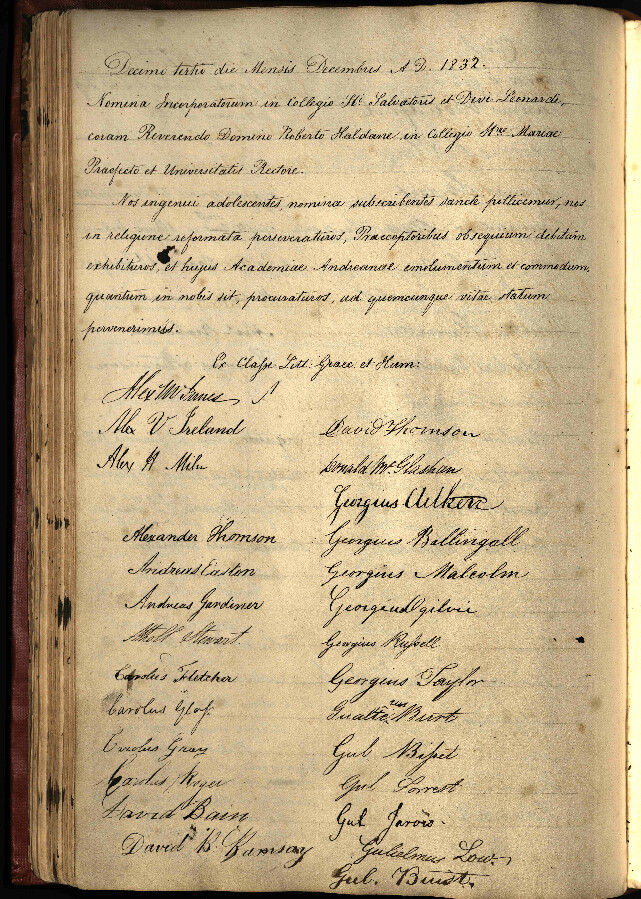 Decimo tertio die Mensis Decembris A.D. 1832.
Nomina Incorporatorum in Collegio Sti Salvatoris et Divi Leonardi,
coram Reverendo Domino Roberto Haldane in Collegio Stae Mariae
Praefecto et Universitatis Rectore.
Nos ingenui adolescentes, nomina subscribentes sancte pollicemur, nos
in religione reformata perseveraturos, Praeceptoribus obsequium debitum
exhibituros, et hujus Academiae Andreanae emolumentum et commodum,
quantum in nobis sit, procuraturos, ad quemcunque vitae statum
pervenerimus.
Ex Classe Litt: Graec. et Hum:
Alex McInnes
Alex V Ireland
Alex H Milne
Alexander Thomson
Andreas Easton
Andreas Gardiner
Atholl Stewart
Carolus Fletcher
Carolus Glass
Carolus Gray
Carolus Roger
David Bain
David B. Ramsay
David Thomson
Donald McGlashan
Georgius Aitken
Georgius Ballingall
Georgius Malcolm
Georgius Ogilvie
Georgius Russell
Georgius Taylor
Gualterus Burt
Gul Bisset
Gul Forrest
Gul Jarvis
Gulielmus Low
Gul. Buist.